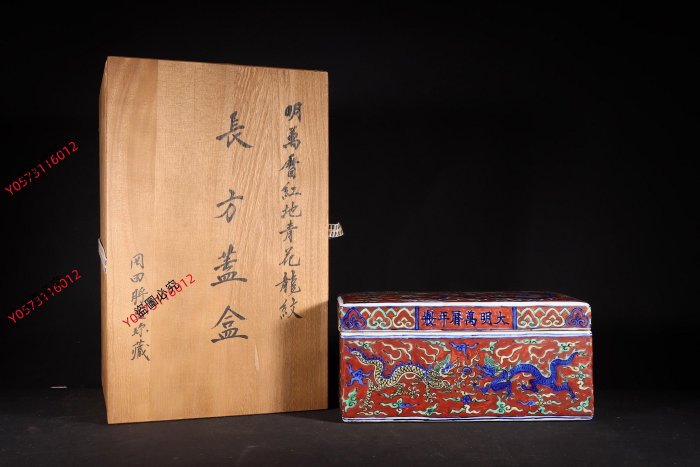 明萬曆紅地青花龍紋
長方蓋盒
岡田 珍藏
大明萬曆年製
盜圖必究
Y0573116012
Y0573116012
Y0573116012